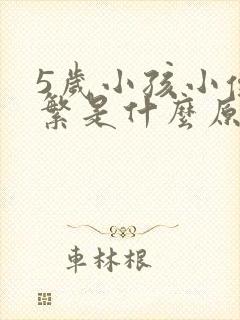 5歲小孩小
繁是什麼原
車林根